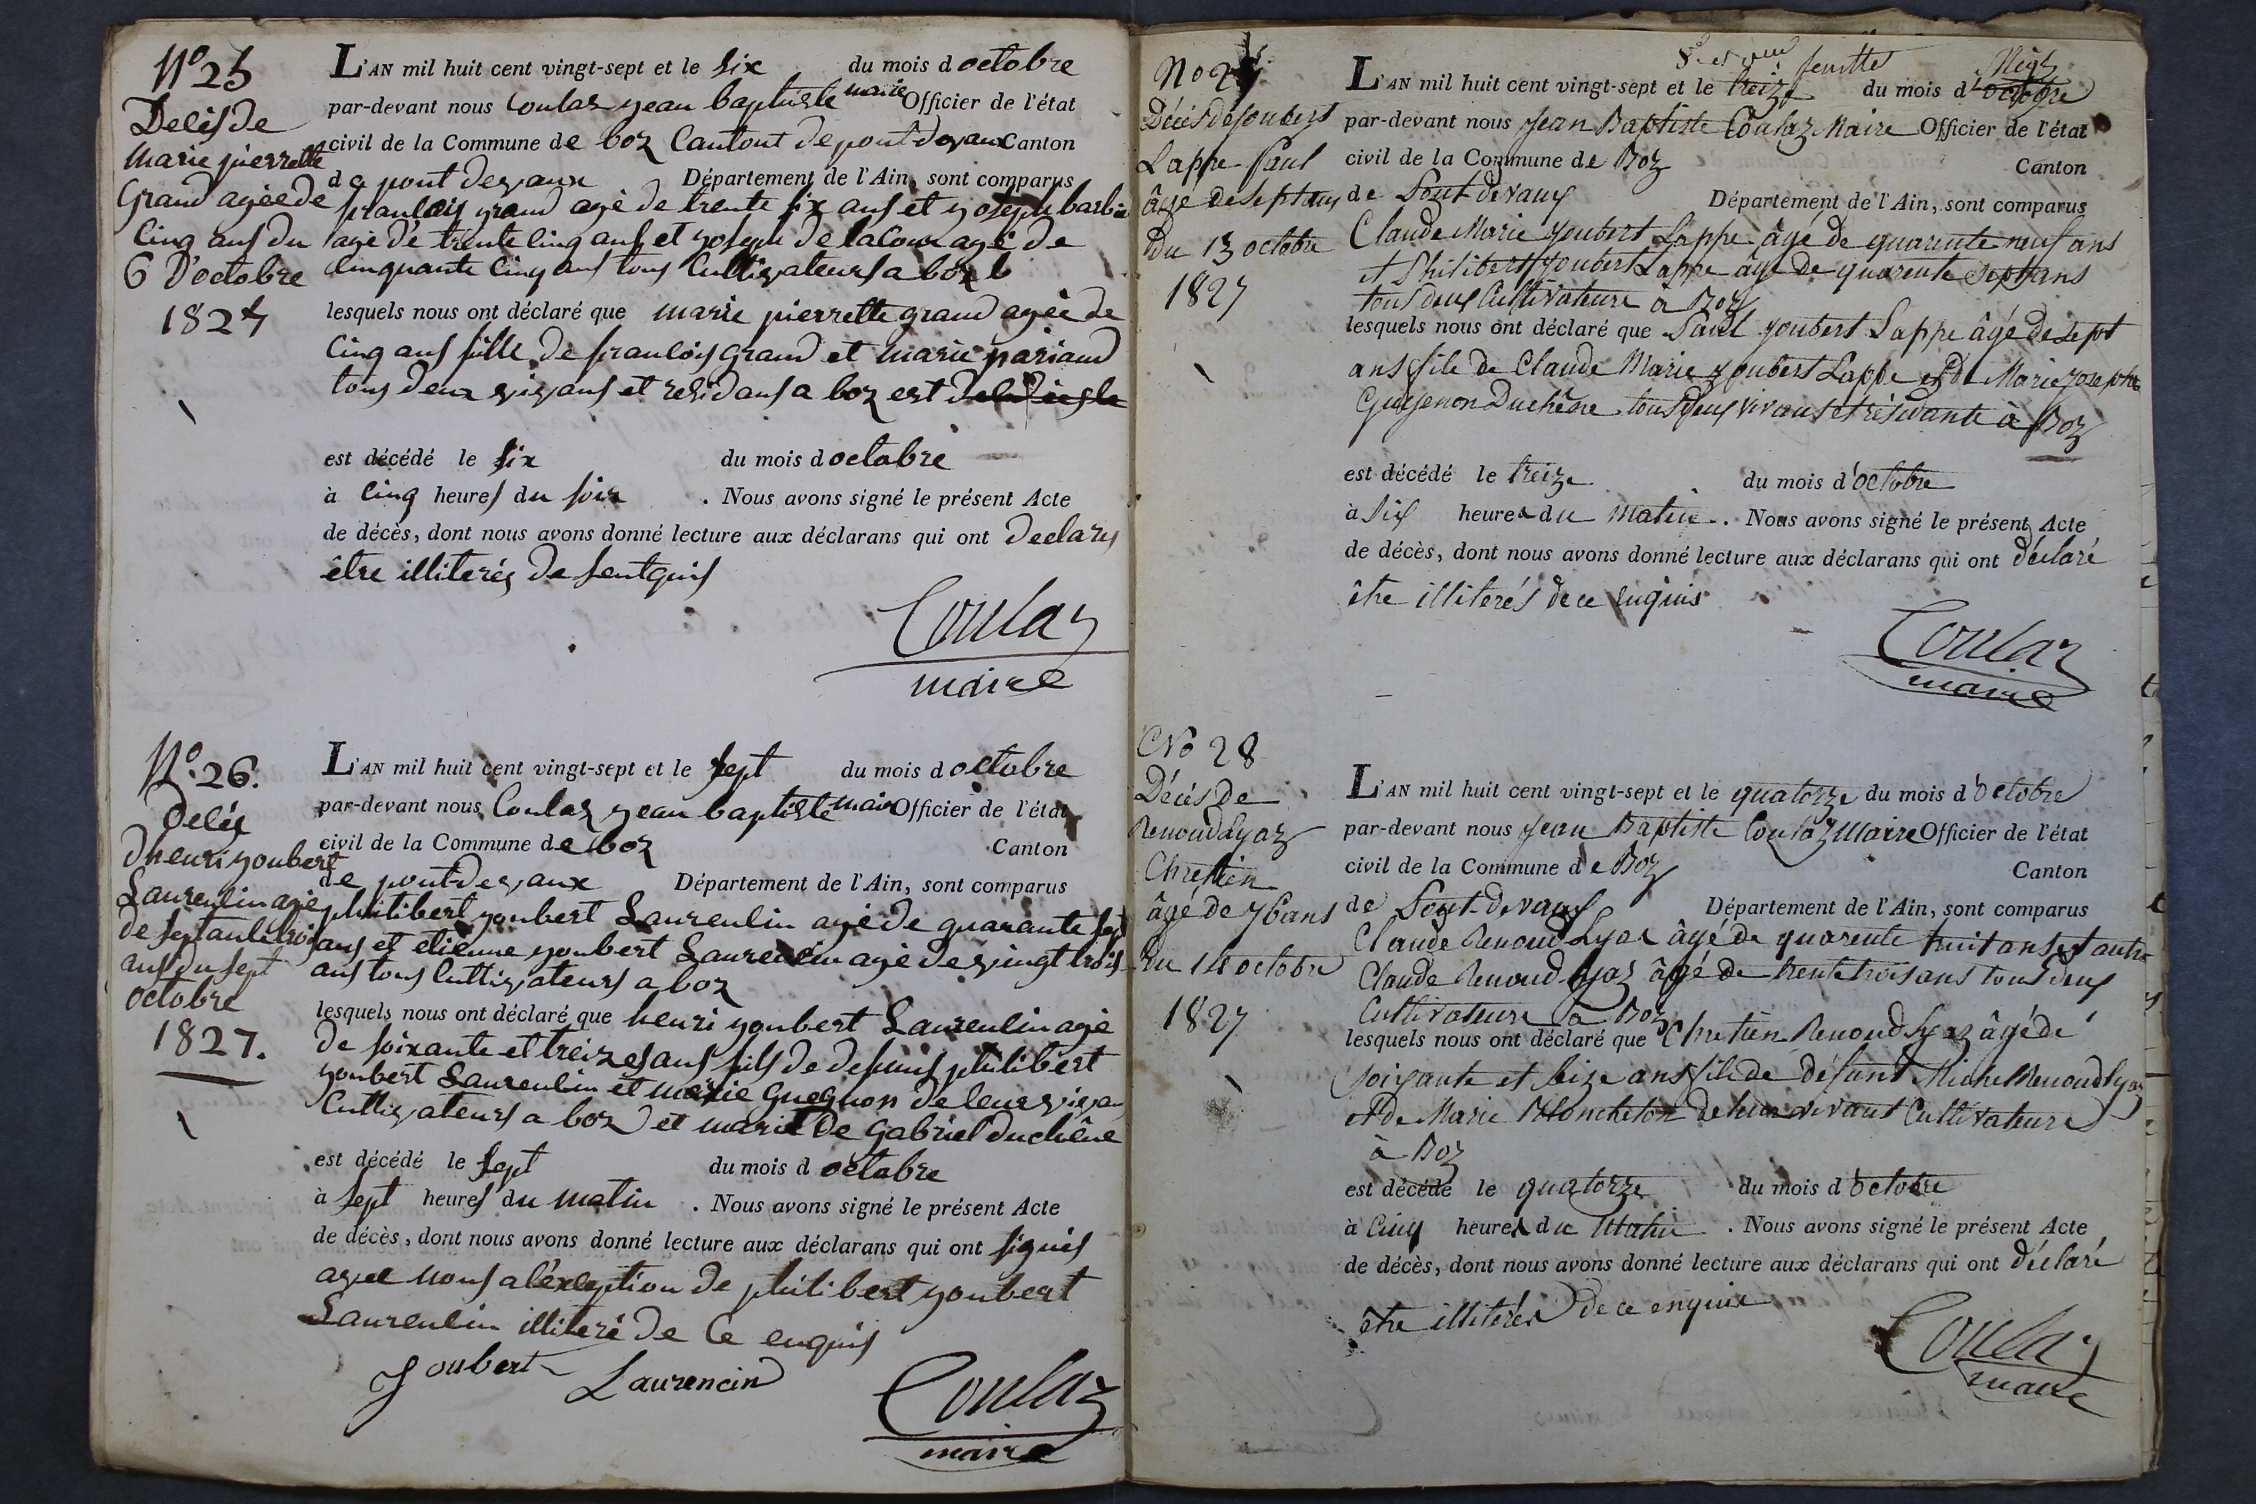 N.º 25
Decès de
marie pierrette
Grand agée de
Cinq ans du
6 D'octobre
1827
L'AN mil huit cent vingt-sept et le six du mois d octobre
par-devant nous Coulaz jean baptiste maire Officier de l'état
civil de la Commune de boz Cantont de pont-devaux Canton
de pont devaux Département de l'Ain, sont comparus
francois grand agé de trente six ans et joseph barbie
agé de trente cinq ans et joseph de lacour agé de
cinquante cinq ans tous Cultivateurs a boz
lesquels nous ont déclaré que marie pierrette grand agée de
Cinq ans fille de francois Grand et marie pariaud
tous deux vivans et residans a boz est
est décédé le six du mois d octobre
à Cinq heures du soir . Nous avons signé le présent Acte
de décès, dont nous avons donné lecture aux déclarans qui ont declarés
être illiterés de
Coulaz
maire
N.º 26.
decès
d henri joubert
Laurencin agé
de septante trois
ans du sept
octobre
1827.
L'AN mil huit cent vingt-sept et le sept du mois d octobre
par-devant nous Coulaz jean baptiste maire Officier de l'état
civil de la Commune de boz Canton
de pont-devaux Département de l'Ain, sont comparus
philibert joubert Laurencin agé de quarante sept
ans et etienne joubert Laurencin agé de vingt trois
ans tous Cultivateurs a boz
lesquels nous ont déclaré que henri joubert Laurencin agé
de soixante et treizes ans fils de defunts philibert
joubert Laurencin et marie Guegnon de leur vivan
Cultivateurs a boz et marie de Gabriel duchêne
est décédé le sept du mois d octobre
à sept heures du matin . Nous avons signé le présent Acte
de décès, dont nous avons donné lecture aux déclarans qui ont signés
avec nous a léxception de philibert joubert
Laurencin illiteré de Ce enquis
Joubert Laurencin
Coulaz
maire
No 27
Décès de Joubert
Lappe Paul
âgé de sept ans
Du 13 octobre
1827
feuille
L'AN mil huit cent vingt-sept et le treize du mois d'octobre
par-devant nous Jean Baptiste Coulaz Maire Officier de l'état
civil de la Commune de Boz Canton
de Pont devaux Département de l'Ain, sont comparus
Claude Marie Joubert Lappe âgé de quarente neuf ans
et Philibert Joubert Lappe âgé de quarente sept ans
tous deux Cultivateurs à Boz
lesquels nous ont déclaré que Paul Joubert Lappe âgé de sept
ans fils de Claude Marie Joubert Lappe et de Marie Josephte
Guyenon Duchêne tous deux vivans et résidants à Boz
est décédé le treize du mois d'octobre
à six heures du matin . Nous avons signé le présent Acte
de décès, dont nous avons donné lecture aux déclarans qui ont déclaré
être illiterés de ce enquis
Coulaz
maire
No 28
Décès de
Renoud Lyaz
Chrettien
âgé de 76 ans
Du 14 octobre
1827
L'AN mil huit cent vingt-sept et le quatorze du mois d'octobre
par-devant nous Jean Baptiste Coulaz Maire Officier de l'état
civil de la Commune de Boz Canton
de Pont-devaux Département de l'Ain, sont comparus
Claude Renoud Lyaz âgé de quarente huit ans et autre
Claude Renoud Lyaz âgé de trente trois ans tous deux
Cultivateurs à Boz
lesquels nous ont déclaré que Chretien Renoud Lyaz âgé de
soixante et seize ans fils de défunt Michel Renoud Lyaz
et de Marie Moncheton de leur vivant Cultivateurs
à Boz
est décédé le quatorze du mois d'octobre
à Cinq heures du Matin . Nous avons signé le présent Acte
de décès, dont nous avons donné lecture aux déclarans qui ont déclaré
être illitérés de ce enquis
Coulaz
maire